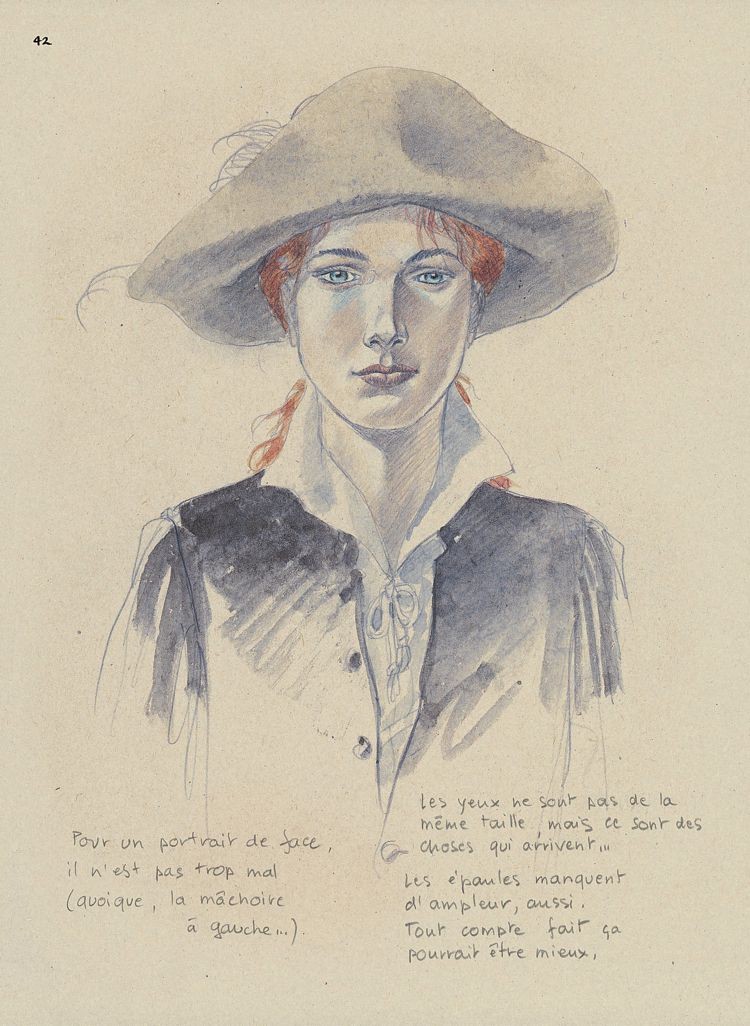 42
Pour un portrait de face,
il n'est pas trop mal
(quoique, la mâchoire
à gauche...).
Les yeux ne sont pas de la
même taille, mais ce sont des
choses qui arrivent...
Les épaules manquent
d'ampleur, aussi.
Tout compte fait ça
pourrait être mieux,